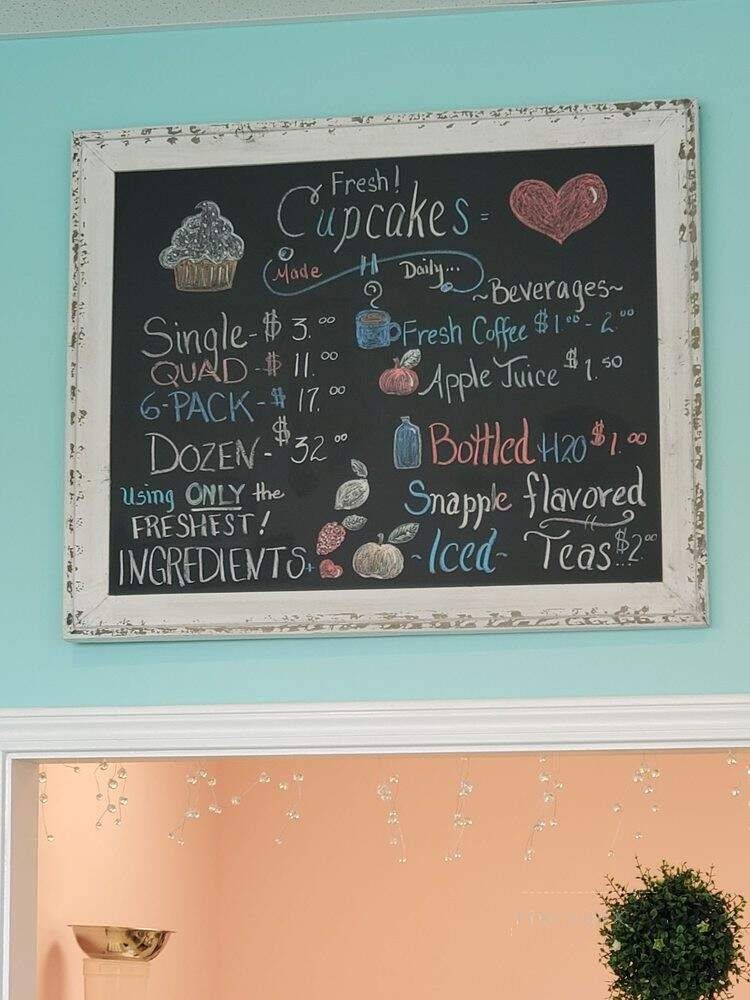 Fresh!
Cupcakes =
Made Daily...
Single - $3.00
QUAD - $11.00
6-PACK - $17.00
DOZEN - $32.00
Using ONLY the
FRESHEST!
INGREDIENTS
~Beverages~
Fresh Coffee $1.00 - 2.00
Apple Juice $1.50
Bottled H20 $1.00
Snapple flavored
~Iced~ Teas $2.00